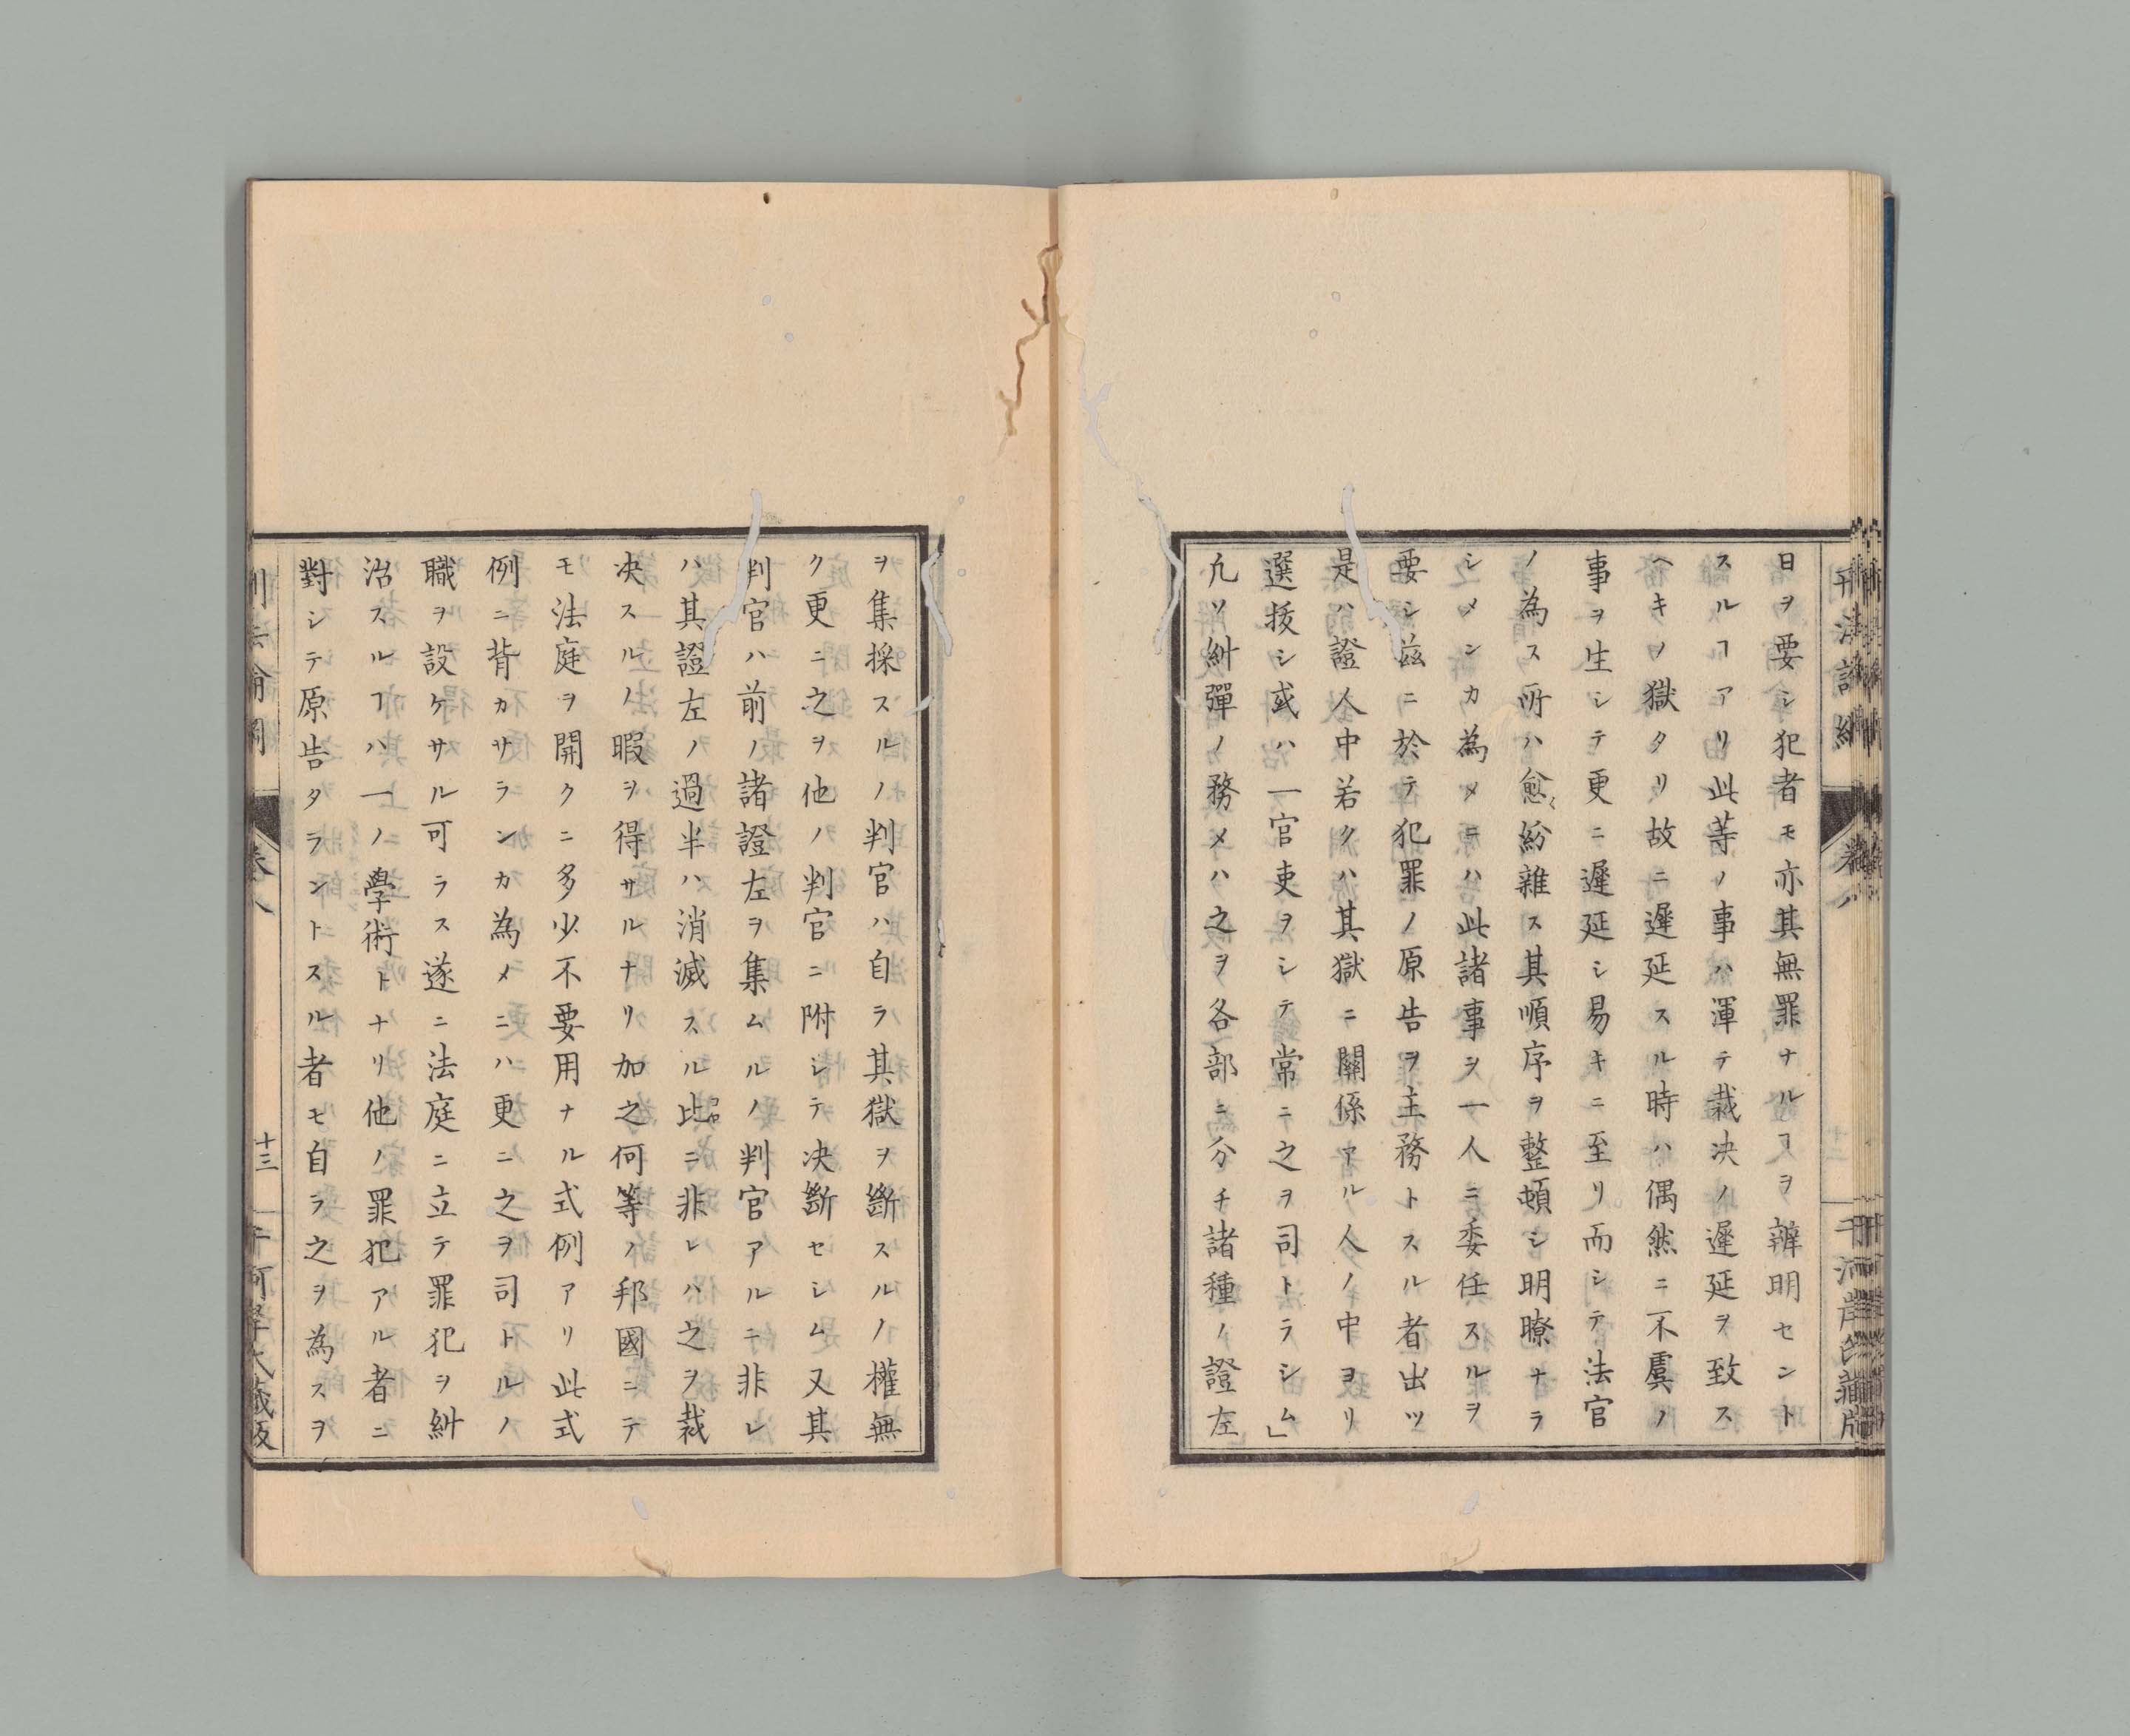 日ヲ要シ犯者モ亦其無罪ナルヿヲ辨明セント
スルヿアリ此等ノ事ハ渾テ裁决ノ遲延ヲ致ス
ヘキノ獄タリ故ニ遲延スル時ハ偶然ニ不虞ノ
事ヲ生シテ更ニ遲延シ易キニ至リ而シテ法官
ノ為ス所ハ愈〻紛雜ス其順序ヲ整頓シ明瞭ナラ
シメンカ為メニハ此諸事ヲ一人ニ委任スルヲ
要シ茲ニ於テ犯罪ノ原告ヲ主務トスル者出ツ
是ハ證人中若クハ其獄ニ關係アル人ノ中ヨリ
選拔シ或ハ一官吏ヲシテ常ニ之ヲ司トラシム」
凡ソ糾彈ノ務メハ之ヲ各部ニ分チ諸種ノ證左
ヲ集採スルノ判官ハ自ラ其獄ヲ斷スルノ權無
ク更ニ之ヲ他ノ判官ニ附シテ决斷セシム又其
判官ハ前ノ諸證左ヲ集ムルノ判官アルニ非レ
ハ其證左ノ過半ハ消滅スル比ニ非レハ之ヲ裁
决スルノ暇ヲ得サルナリ加之何等ノ邦國ニテ
モ法庭ヲ開クニ多少不要用ナル式例アリ此式
例ニ背カサランカ為メニハ更ニ之ヲ司トルノ
職ヲ設ケサル可ラス遂ニ法庭ニ立テ罪犯ヲ糾
治スルヿハ一ノ學術トナリ他ノ罪犯アル者ニ
對シテ原告タラントスル者モ自ラ之ヲ為スヲ
卷八
十三